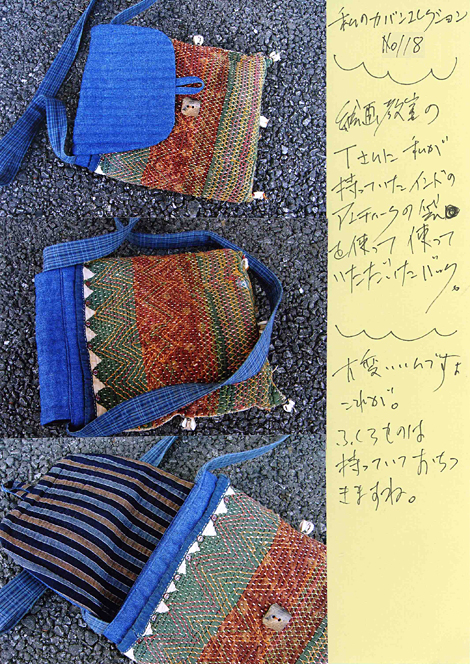 私のカバンコレクション
No118
絵画教室の
Tさんに私が
持っていたインドの
アンティークの袋
を使って使って
いただいたバック。
大変いいんですよ
これが。
ふくろものは
持っていておちつ
きますね。